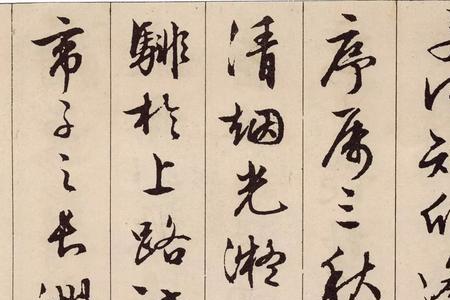 序属三秋
清烟光凝
騑於上路
帝子之長